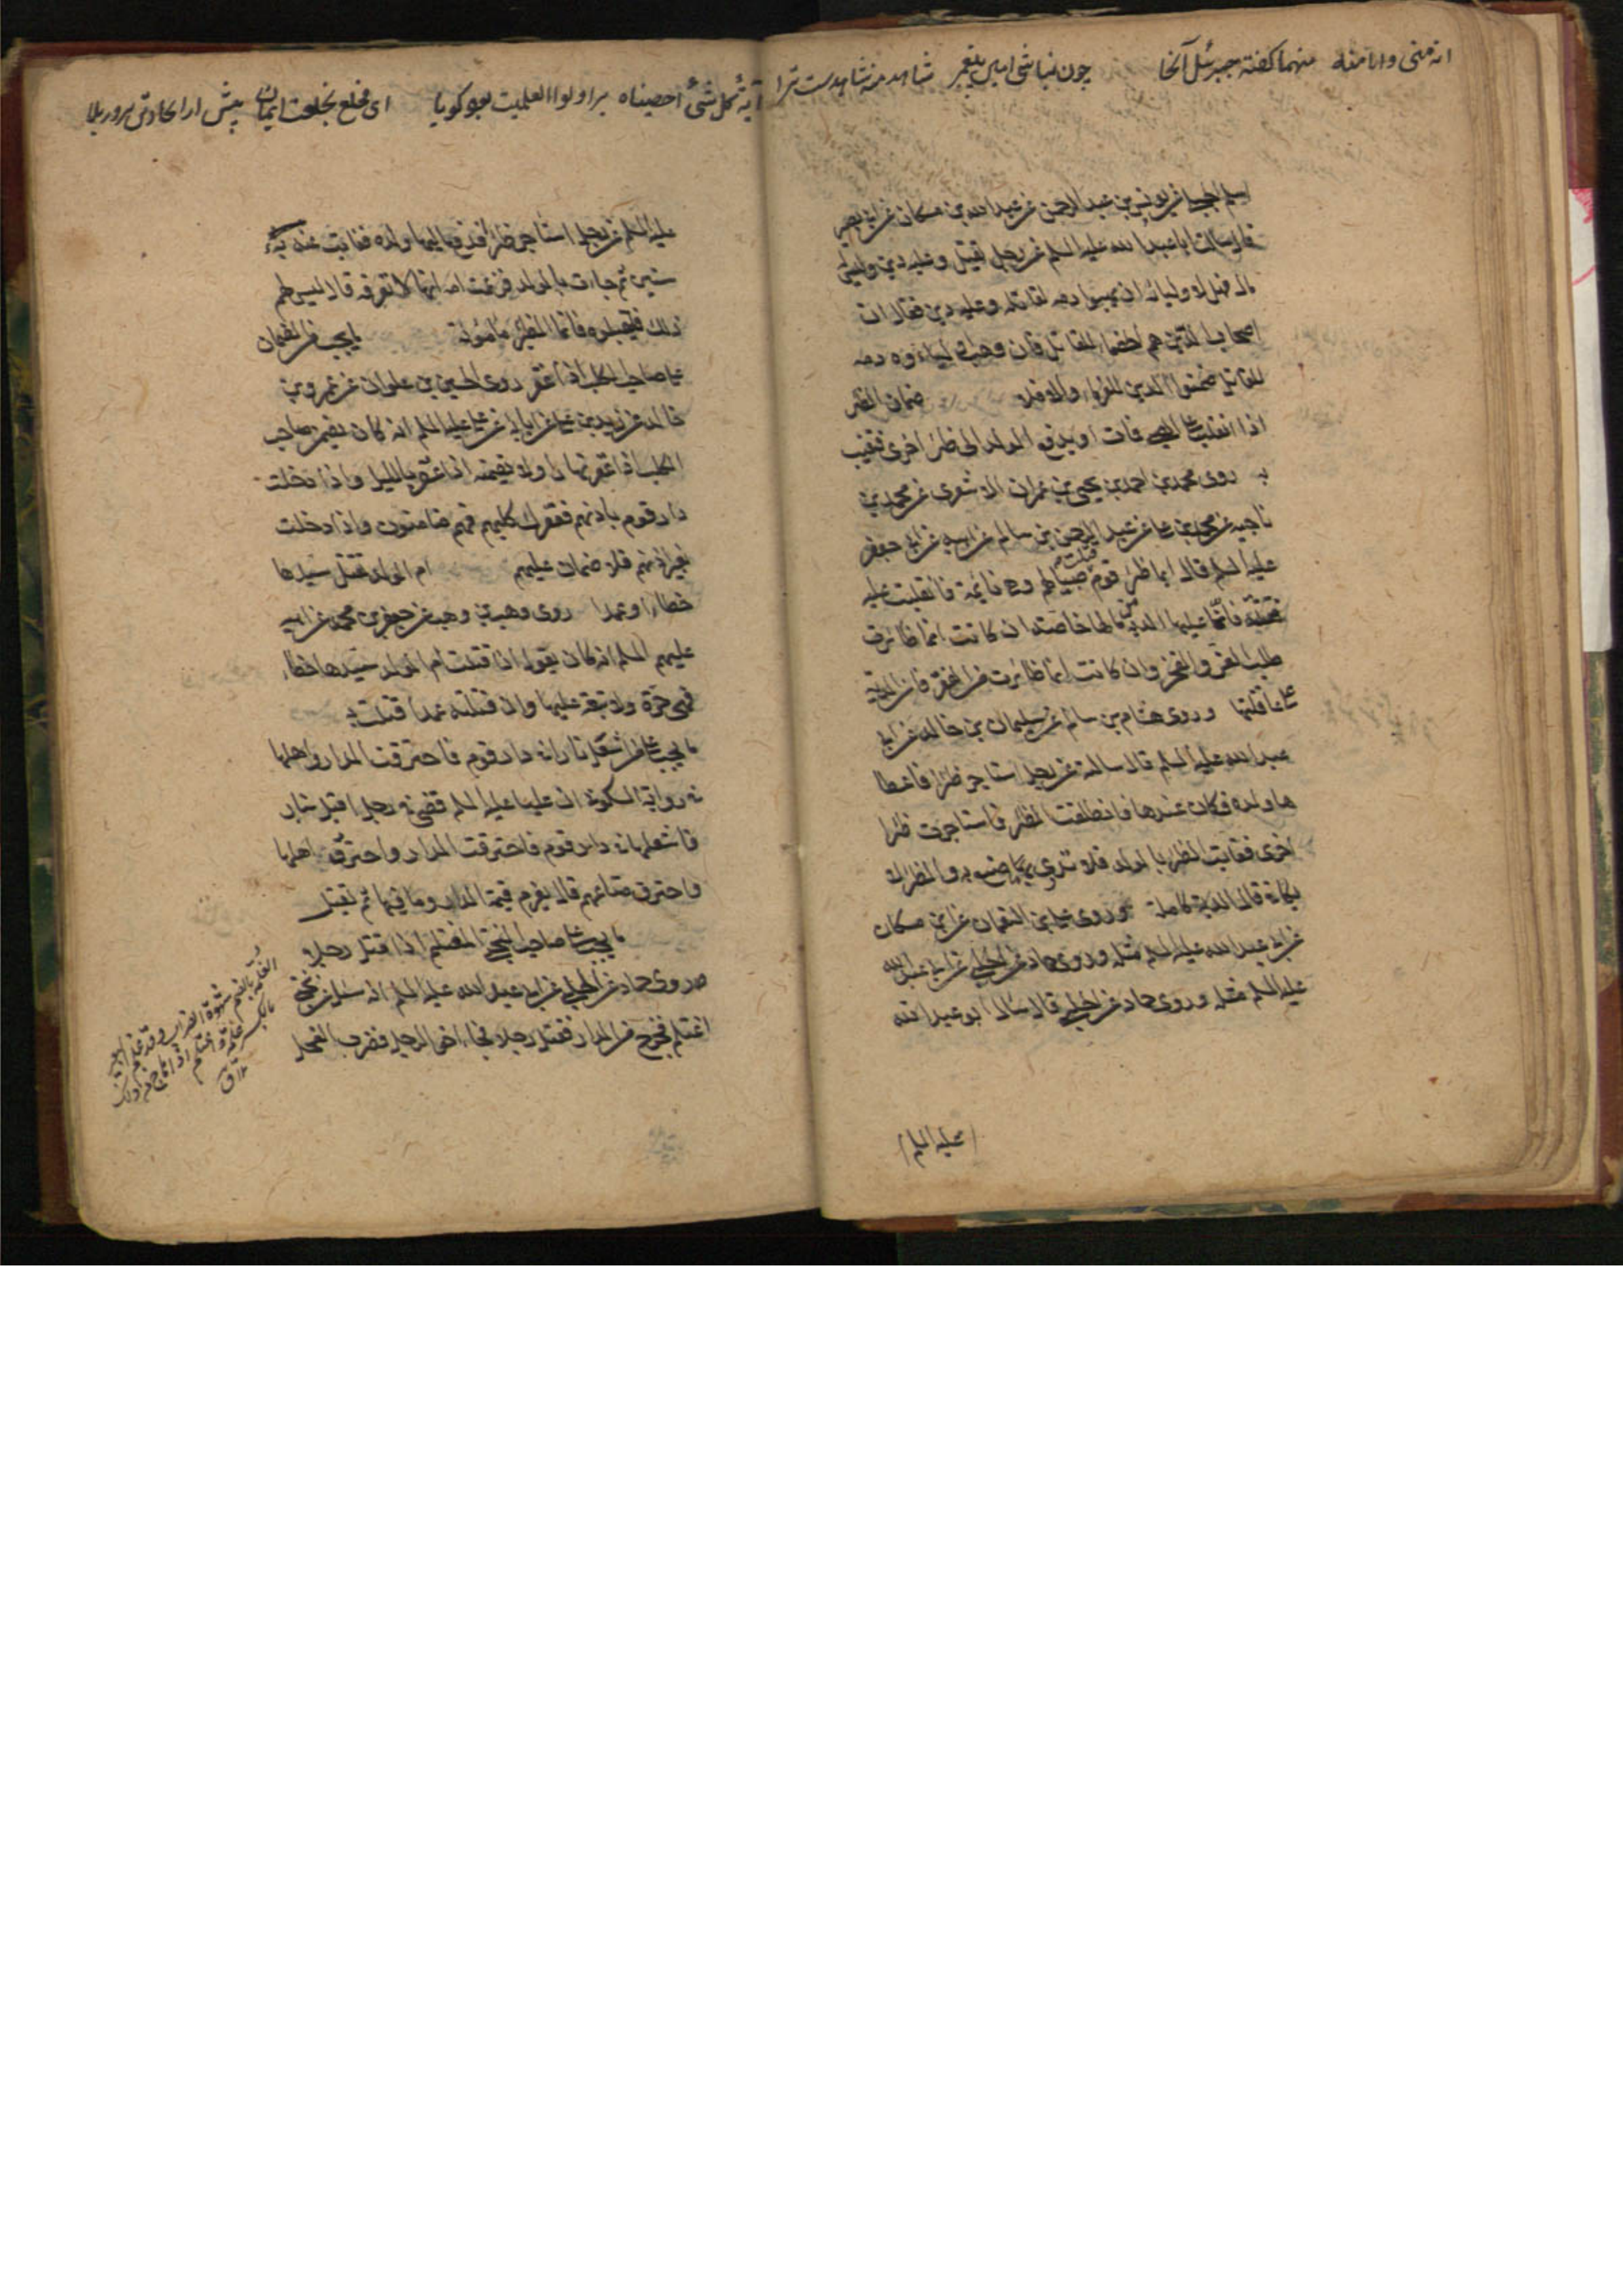 انه منی وانا منه منهما کفته جبرئیل آنجا
چون نباشی امین پیغمبر شاهد منه شاهدست ترا
اسلم الجبلی عن یونس بن عبد الرحمن عن عبد الله بن مسکان عن ابی بصیر
قال سالت ابا عبد الله علیه السلم عن رجل یقتل وعلیه دین ولیس له
مال فهل لاولیائه ان یهبوا دمه لقاتله وعلیه دین فقال ان
اصحاب الدین هم الخصماء للقاتل فان وهب اولیاءه دمه
للقاتل ضمنوا الدین للغرماء والا فلا ضمان الظئر
اذا انقلبت علی الصبی فمات او یدفع الولد الی ظئر اخری فتغیب
به روی محمد بن احمد بن یحیی بن عمران الاشعری عن محمد بن
ناجیه عن محمد بن علی عن عبد الرحمن بن سالم عن ابیه عن ابی جعفر
علیه السلم قال ایما ظئر قوم قتلت صبیا لهم وهی نائمة فانقلبت علیه
فقتلته فانما علیها الدیة من مالها خاصة ان کانت انما ظائرت
طلب العز والفخر وان کانت انما ظائرت من الفقر فان الدیة
علی عاقلتها وروی هشام بن سالم عن سلیمان بن خالد عن ابی
عبد الله علیه السلم قال سالته عن رجل استاجر ظئرا فاعطا
ها ولده فکان عندها فانطلقت الظئر فاستاجرت ظئرا
اخری فغابت الظئر بالولد فلا تدری ما صنع به والظئر لا
یکافی قال الدیة کاملة وروی علی بن النعمان عن ابن مسکان
عن ابی عبد الله علیه السلم مثله وروی حماد عن الحلبی عن ابی عبد الله
علیه السلم مثله وروی حماد عن الحلبی قال سال ابو عبد الله
علیه السلم
آیة کل شیء احصیناه براولوا العلمیت
ای مخلع بخلعت ایمان پیش
علیه السلم عن رجل استاجر ظئرا فدفع الیها ولده فغابت عنه به
سنین ثم جاءت بالولد فزعمت امه انها لا تعرفه قال لیس لهم
ذلك فلیقبلوه فانما الظئر مامونة ما یجب من الضمان
علی صاحب الکلب اذا عقر روی الحسین بن علوان عن عمرو بن
خالد عن زید بن علی عن ابائه عن علی علیه السلم انه کان یضمن صاحب
الکلب اذا عقر نهارا ولا یضمنه اذا عقر باللیل واذا دخلت
دار قوم باذنهم فعقرك کلبهم فهم ضامنون واذا دخلت
بغیر اذنهم فلا ضمان علیهم ام الولد تقتل سیدها
خطاء او عمدا روی وهب بن وهب عن جعفر بن محمد عن ابیه
علیهم السلم انه کان یقول اذا قتلت ام الولد سیدها خطاء
فهی حرة ولا تبعة علیها وان قتلته عمدا قتلت به
ما یجب علی من اشعل نارا فی دار قوم فاحترقت الدار واهلها
فی روایة السکونی ان علیا علیه السلم قضی فی رجل اقبل بنار
فاشعلها فی دار قوم فاحترقت الدار واحترق اهلها
واحترق متاعهم قال یغرم قیمة الدار وما فیها ثم یقتل
ما یجب علی صاحب البختی المغتلم اذا قتل رجلا
روی حماد عن الحلبی عن ابی عبد الله علیه السلم انه سئل عن بختی
اغتلم فخرج من الدار فقتل رجلا فجاء اخو الرجل فضرب الفحل
الغلمة بالضم شهوة الضراب وقد غلم البعیر
بالکسر غلمة واغتلم اذا هاج من ذلك